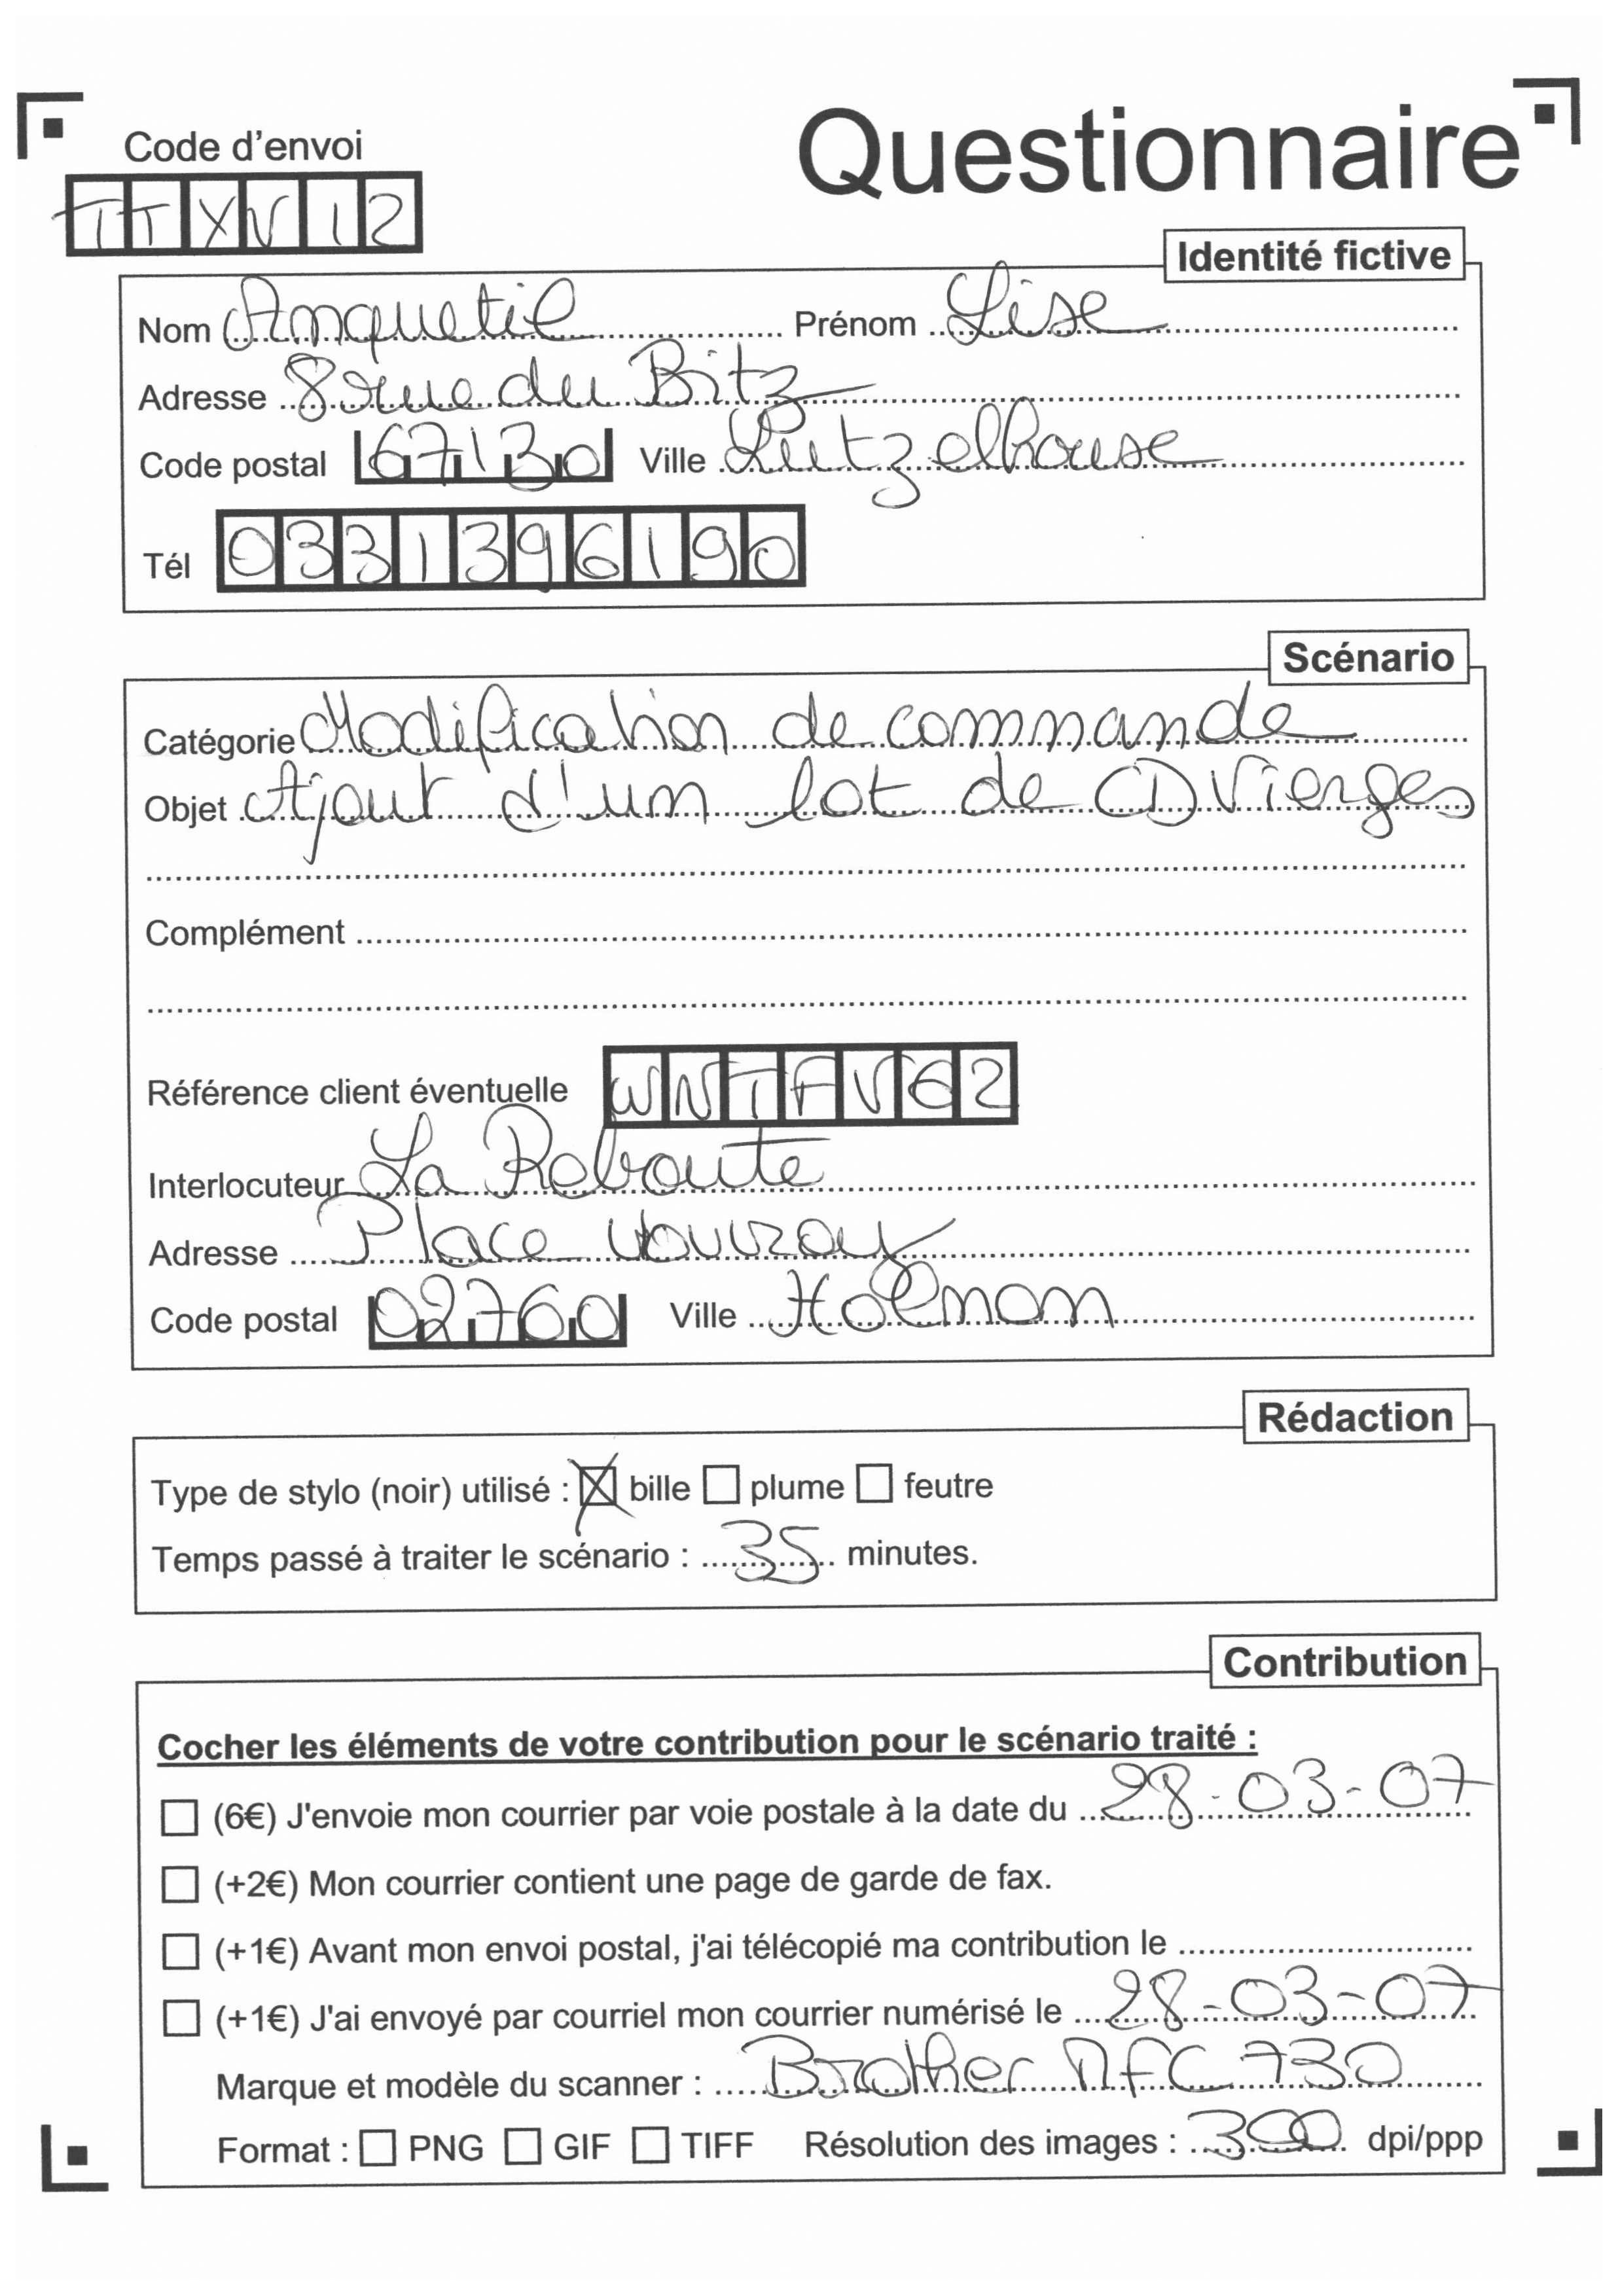 Questionnaire
Code d'envoi
TTXV12
Identité fictive
Nom Anquetil Prénom Lise
Adresse 8 rue du Bitz
Code postal 67130 Ville Lutzelhouse
Tél 0331396190
Scénario
Catégorie Modification de commande
Objet Ajout d'un lot de CD Vierges
Complément
Référence client éventuelle WNTFV62
Interlocuteur La Reboute
Adresse Place Vouvray
Code postal 02760 Ville Holmon
Rédaction
Type de stylo (noir) utilisé : ☒ bille ☐ plume ☐ feutre
Temps passé à traiter le scénario : 35 minutes.
Contribution
Cocher les éléments de votre contribution pour le scénario traité :
☐ (6€) J'envoie mon courrier par voie postale à la date du 28-03-07
☐ (+2€) Mon courrier contient une page de garde de fax.
☐ (+1€) Avant mon envoi postal, j'ai télécopié ma contribution le
☐ (+1€) J'ai envoyé par courriel mon courrier numérisé le 28-03-07
Marque et modèle du scanner : Brother MFC 730
Format : ☐ PNG ☐ GIF ☐ TIFF Résolution des images : 300 dpi/ppp